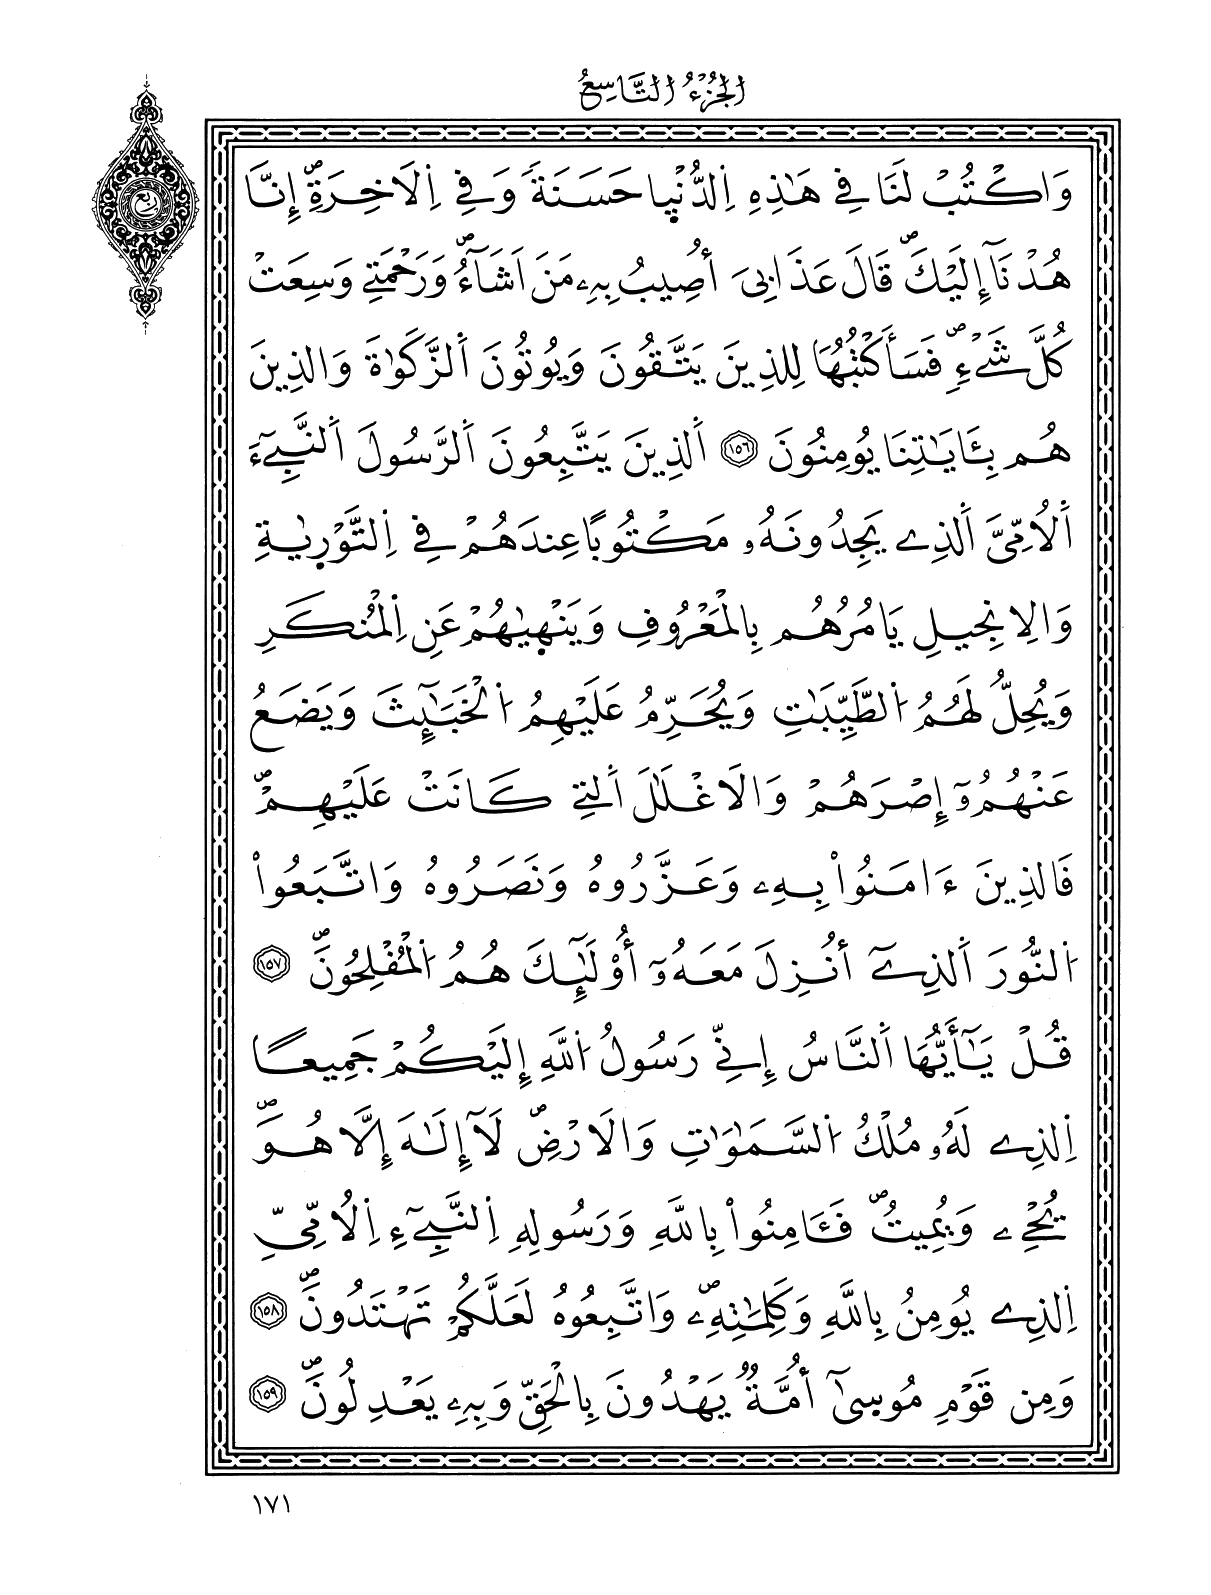 الجزء التاسع
ربع
وَاكْتُبْ لَنَا فِے هَٰذِهِ اِ۬لدُّنْي۪ا حَسَنَةٗ وَفِے اِ۬لَاخِرَةِۖ إِنَّا
هُدْنَآ إِلَيْكَۖ قَالَ عَذَابِيَ أُصِيبُ بِهِۦ مَنَ اَشَآءُۖ وَرَحْمَتِے وَسِعَتْ
كُلَّ شَےْءٖۖ فَسَأَكْتُبُهَا لِلذِينَ يَتَّقُونَ وَيُوتُونَ اَ۬لزَّكَوٰةَ وَالذِينَ
هُم بِـَٔايَٰتِنَا يُومِنُونَ ١٥٦ اَ۬لذِينَ يَتَّبِعُونَ اَ۬لرَّسُولَ اَ۬لنَّبِےٓءَ
اَ۬لُامِّيَّ اَ۬لذِے يَجِدُونَهُۥ مَكْتُوباً عِندَهُمْ فِے اِ۬لتَّوْر۪يٰةِ
وَالِانجِيلِ يَامُرُهُم بِالْمَعْرُوفِ وَيَنْه۪يٰهُمْ عَنِ اِ۬لْمُنكَرِ
وَيُحِلُّ لَهُمُ اُ۬لطَّيِّبَٰتِ وَيُحَرِّمُ عَلَيْهِمُ اُ۬لْخَبَٰٓئِثَ وَيَضَعُ
عَنْهُمُۥٓ إِصْرَهُمْ وَالَاغْلَٰلَ اَ۬لتِے كَانَتْ عَلَيْهِمْۖ
فَالذِينَ ءَامَنُواْ بِهِۦ وَعَزَّرُوهُ وَنَصَرُوهُ وَاتَّبَعُواْ
اُ۬لنُّورَ اَ۬لذِےٓ أُنزِلَ مَعَهُۥٓ أُوْلَٰٓئِكَ هُمُ اُ۬لْمُفْلِحُونَۖ ١٥٧
قُلْ يَٰٓأَيُّهَا اَ۬لنَّاسُ إِنِّے رَسُولُ اُ۬للَّهِ إِلَيْكُمْ جَمِيعاً
اِ۬لذِے لَهُۥ مُلْكُ اُ۬لسَّمَٰوَٰتِ وَالَارْضِۖ لَآ إِلَٰهَ إِلَّا هُوَۖ
يُحْيِۦ وَيُمِيتُۖ فَـَٔامِنُواْ بِاللَّهِ وَرَسُولِهِ اِ۬لنَّبِےٓءِ اِ۬لُامِّيِّ
اِ۬لذِے يُومِنُ بِاللَّهِ وَكَلِمَٰتِهِۦۖ وَاتَّبِعُوهُ لَعَلَّكُمْ تَهْتَدُونَۖ ١٥٨
وَمِن قَوْمِ مُوس۪ىٰٓ أُمَّةٞ يَهْدُونَ بِالْحَقِّ وَبِهِۦ يَعْدِلُونَۖ ١٥٩
١٧١